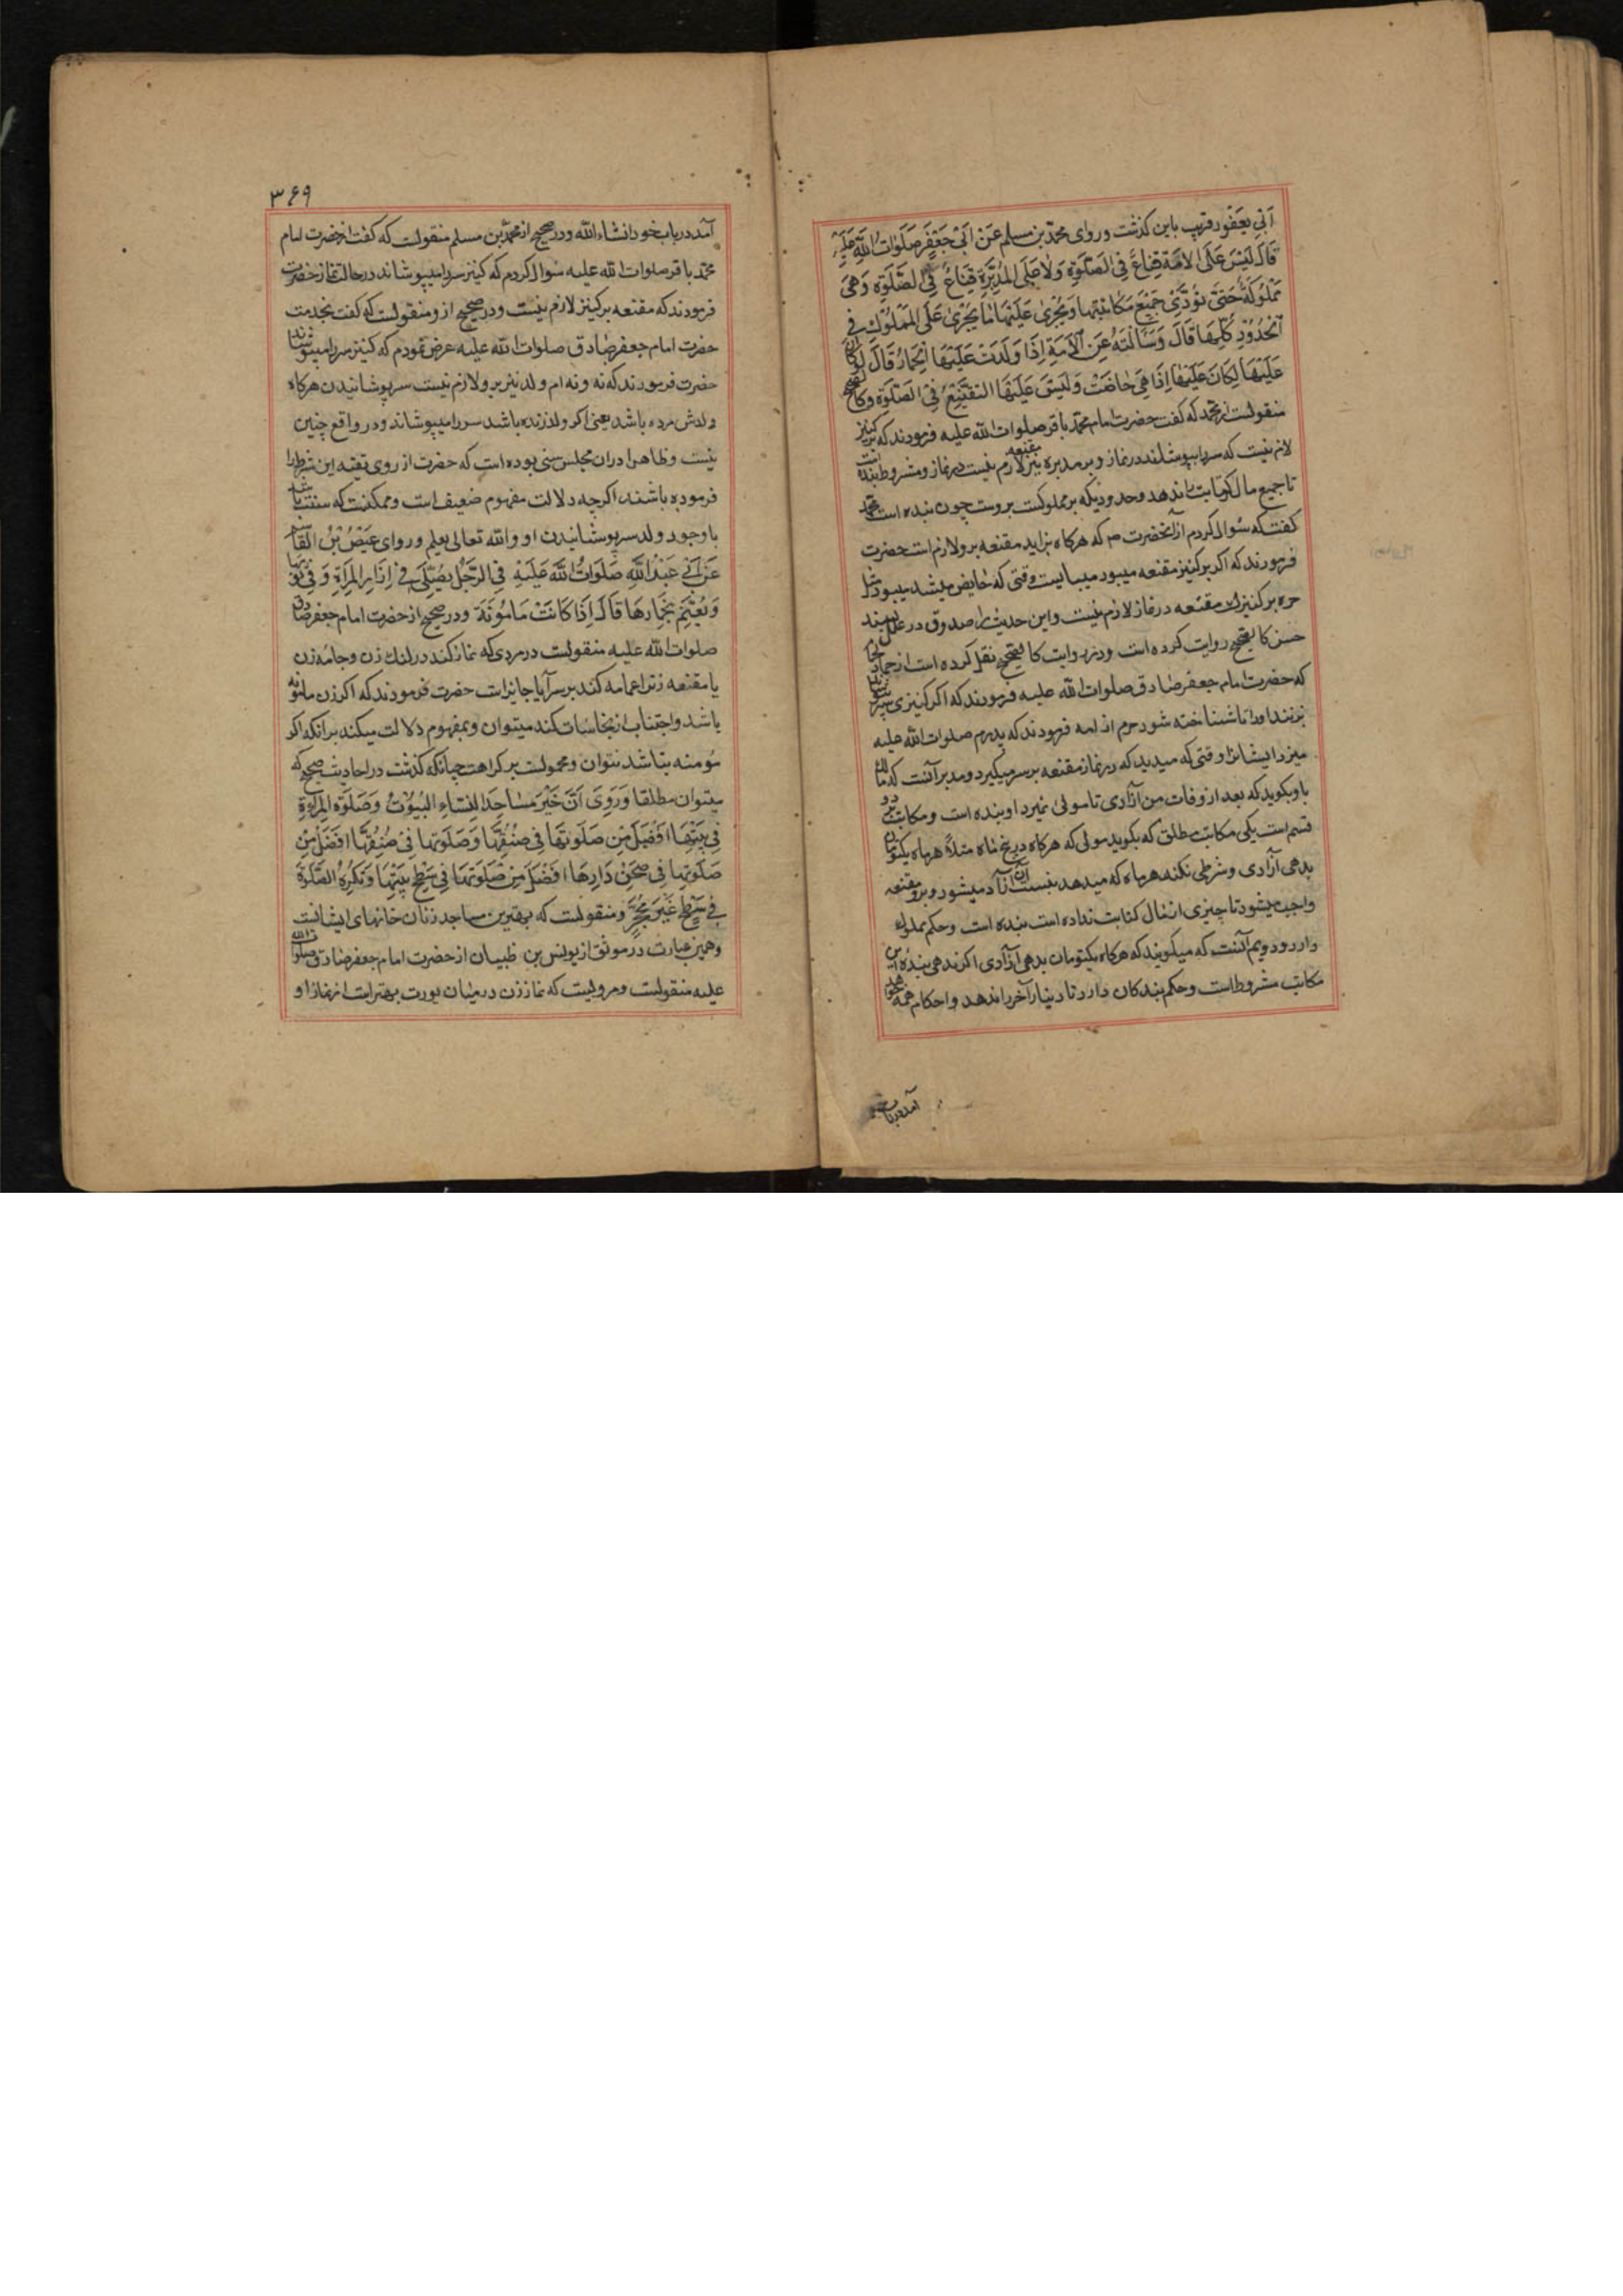 ابی یعفور قریب باین کذشت و روای محمّد بن مسلم عَنْ اَبیْ جَعْفَرٍ صَلَوَاتُ اللّهِ عَلَیْهِ
قَالَ لَیْسَ عَلَی الاَمَةِ قِنَاعٌ فِی الصَّلوةِ وَلاٰ عَلَی المُدَبَّرَةِ قِنَاعٌ فِی الصَّلوٰةِ وَهِیَ
مَمْلُوکَةٌ حَتّیٰ تُؤَدِّیَ جَمِیْعَ مَکَاتَبَتِهَا وَیَجْرِیْ عَلَیْهَا مٰا یَجْرِیْ عَلَی المَمْلُوْکِ فِی
الْحُدُوْدِ کُلِّهَا قَالَ وَسَاَلْتُهُ عَنِ الاَمَةِ اِذَا وَلَدَتْ عَلَیْهَا الْخِمَارُ قَالَ لَوْ کَانَ
عَلَیْهَا لَکَانَ عَلَیْهَا اِذَا هِیَ حٰاضَتْ وَلَیْسَ عَلَیْهَا التَّقَنُّعُ فِیْ الصَّلوٰةِ و کالصحیح
منقولست از محمّد که کفت حضرت امام محمّد باقر صلوات الله علیه فرمودند که بر کنیز
لازم نیست که سر را بپوشاند در نماز و بر مدبره نیز مقنعه لازم نیست در نماز و مشروطه بنده است
تا جمیع مال کتابت را ندهد و حدودیکه بر مملوکست بروست چون بنده است محمد
کفت که سؤال کردم از آنحضرت ص که هرکاه بزاید مقنعه برو لازم است حضرت
فرمودند که اکر بر کنیز مقنعه میبود میبایست وقتی که حایض میشد میبود مثل
حره بر کنیزان مقنعه در نماز لازم نیست و این حدیث را صدوق در علل بسند
حسن کالصحیح روایت کرده است و نیز روایت کالصحیح نقل کرده است از حماد لحام
که حضرت امام جعفر صادق صلوات الله علیه فرمودند که اکر کنیزی سر بپوشد
بزنند او را تا شناخته شود حره از امه فرمودند که پدرم صلوات الله علیه
میزد ایشانرا وقتی که میدید که در نماز مقنعه بر سر میکیرد و مدبر آنست که مالک
باو بکوید که بعد از وفات من آزادی تا مولی نمیرد او بنده است و مکاتب بر دو
قسم است یکی مکاتب مطلق که بکوید مولی که هرکاه در پنج ماه مثلاً هر ماه یکتومان
بدهی آزادی و شرطی نکند هر ماه که میدهد بنسبت آن آزاد میشود و برو مقنعه
واجب میشود تا چیزی از مال کتابت نداده است بنده است و حکم مملوک
دارد و دویم آنست که میکویند که هرکاه یکتومان بدهی آزادی اکر ندهی بندهٔ این
مکاتب مشروط است و حکم بندکان دارد تا دینار آخر را ندهد و احکام همه خواهد
آمد در باب
۳۶۹
آمد در باب خود انشاء الله و در صحیح از محمّد بن مسلم منقولست که کفت از حضرت امام
محمّد باقر صلوات الله علیه سؤال کردم که کنیز سر را میپوشاند در حالت نماز حضرت
فرمودند که مقنعه بر کنیز لازم نیست و در صحیح ازو منقولست که کفت بخدمت
حضرت امام جعفر صٰادق صلوات الله علیه عرض نمودم که کنیز سر را میپوشاند
حضرت فرمودند که نه و نه ام ولد نیز برو لازم نیست سر پوشانیدن هرکاه
ولدش مرده باشد یعنی اکر ولد زنده باشد سر را میپوشاند و در واقع چنین
نیست و ظاهرا دران مجلس سنی بوده است که حضرت از روی تقیه این شرط را
فرموده باشند اکرچه دلالت مفهوم ضعیف است و ممکنست که سنت باشد
با وجود ولد سر پوشانیدن او والله تعالی یعلم و روای عِیْصُ بْنُ القَاسِمِ
عَنْ اَبِیْ عَبْدِ اللّهِ صَلَوَاتُ اللّهِ عَلَیْهِ فِی الرَّجُلِ یُصَلِّیْ فِیْ اِزَارِ المَرْاَةِ وَ فِیْ ثَوْبِهَا
وَیَعْتَمُّ بِخِمَارِهَا قَالَ اِذَا کَانَتْ مَامُوْنَةً و در صحیح از حضرت امام جعفر صادق
صلوات الله علیه منقولست در مردی که نماز کند در لنک زن و جامهٔ زن
یا مقنعه زنرا عمامه کند بر سر آیا جایز است حضرت فرمودند که اکر زن مامونه
باشد و اجتناب از نجاسات کند میتوان و بمفهوم دلالت میکند برانکه اکر
مؤمنه نباشد نتوان و محمولست بر کراهت چنانکه کذشت در احادیث صحیحه که
میتوان مطلقا وَرُوِیَ اَنَّ خَیْرَ مَسٰاجِدِ النِّسَاءِ البُیُوْتُ وَصَلٰوةُ المَرْاَةِ
فِیْ بَیْتِهَا اَفْضَلُ مِنْ صَلٰوتِهَا فِیْ صُفَّتِهَا وَصَلٰوتُهَا فِیْ صُفَّتِهَا اَفْضَلُ مِنْ
صَلٰوتِهَا فِیْ صَحْنِ دَارِهَا اَفْضَلُ مِنْ صَلٰوتِهَا فِیْ سَطْحِ بَیْتِهَا وَتُکْرَهُ الصَّلٰوةُ
فِیْ سَطْحٍ غَیْرِ مُحَجَّرٍ و منقولست که بهترین مساجد زنان خانهای ایشانست
و همین عبارت در موثق از یونس بن ظبیان از حضرت امام جعفر صٰادق صلوات الله
علیه منقولست و مرویست که نماز زن در میان بیوت بهتر است از نماز او